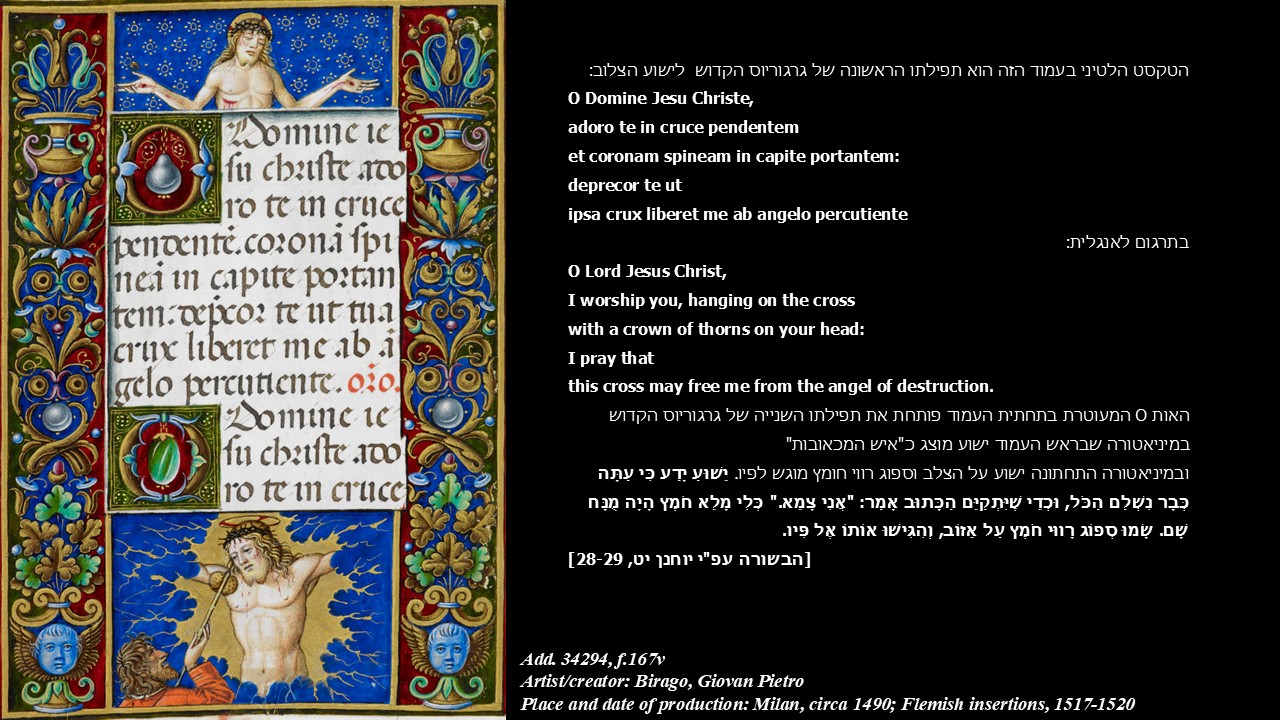 Domine ie
su christe ado
ro te in cruce
pendentē. coronā spi
neā in capite portan
tem: dep̄cor te ut tua
crux liberet me ab ā
gelo percutiente. or̄o.
Domine ie
su christe ado
ro te in cruce
הטקסט הלטיני בעמוד הזה הוא תפילתו הראשונה של גרגוריוס הקדוש לישוע הצלוב:
O Domine Jesu Christe,
adoro te in cruce pendentem
et coronam spineam in capite portantem:
deprecor te ut
ipsa crux liberet me ab angelo percutiente
בתרגום לאנגלית:
O Lord Jesus Christ,
I worship you, hanging on the cross
with a crown of thorns on your head:
I pray that
this cross may free me from the angel of destruction.
האות O המעוטרת בתחתית העמוד פותחת את תפילתו השנייה של גרגוריוס הקדוש
במיניאטורה שבראש העמוד ישוע מוצג כ"איש המכאובות"
ובמיניאטורה התחתונה ישוע על הצלב וספוג רווי חומץ מוגש לפיו. יֵשׁוּעַ יָדַע כִּי עַתָּה
כְּבָר נִשְׁלַם הַכֹּל, וּכְדֵי שֶׁיִּתְקַיֵּם הַכָּתוּב אָמַר: "אֲנִי צָמֵא." כְּלִי מָלֵא חֹמֶץ הָיָה מֻנָּח
שָׁם. שָׂמוּ סְפוֹג רָווּי חֹמֶץ עַל אֵזוֹב, וְהִגִּישׁוּ אוֹתוֹ אֶל פִּיו.
[הבשורה עפ"י יוחנן יט, 28-29]
Add. 34294, f.167v
Artist/creator: Birago, Giovan Pietro
Place and date of production: Milan, circa 1490; Flemish insertions, 1517-1520